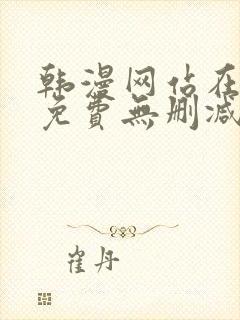 韩漫网站在
免費無删减
崔丹